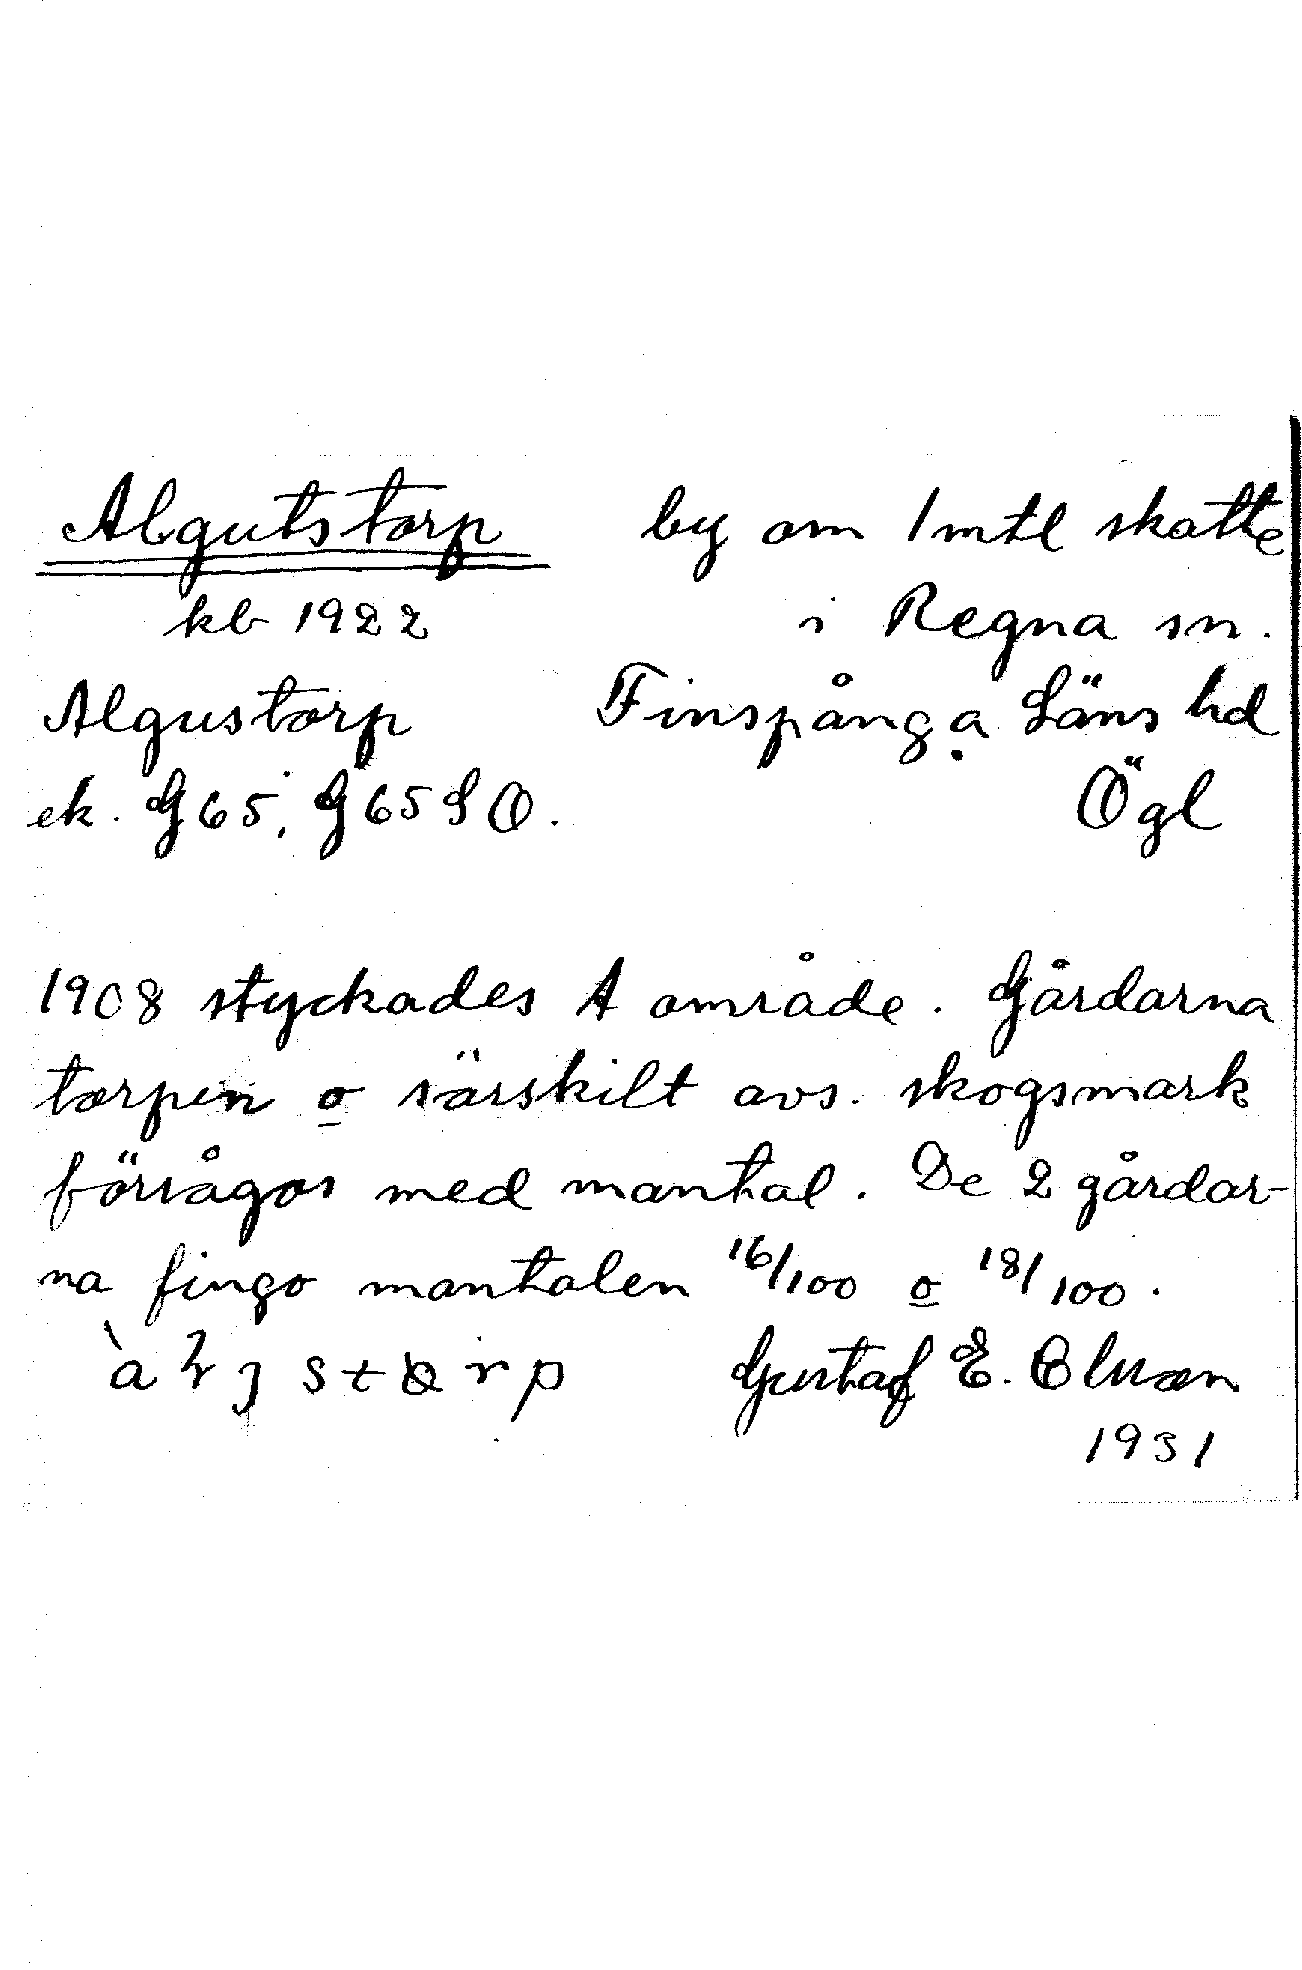 Algutstorp by om 1 mtl skatte
kb 1922 i Regna sn.
Algustorp Finspånga Läns hd
ek. G65; G65SO. Ögl
1908 styckades A område. Gårdarna
torpen o särskilt avs. skogsmark
försågos med mantal. De 2 gårdar-
na fingo mantalen 16/100 o 18/100.
Gustaf E. Olsson
1931